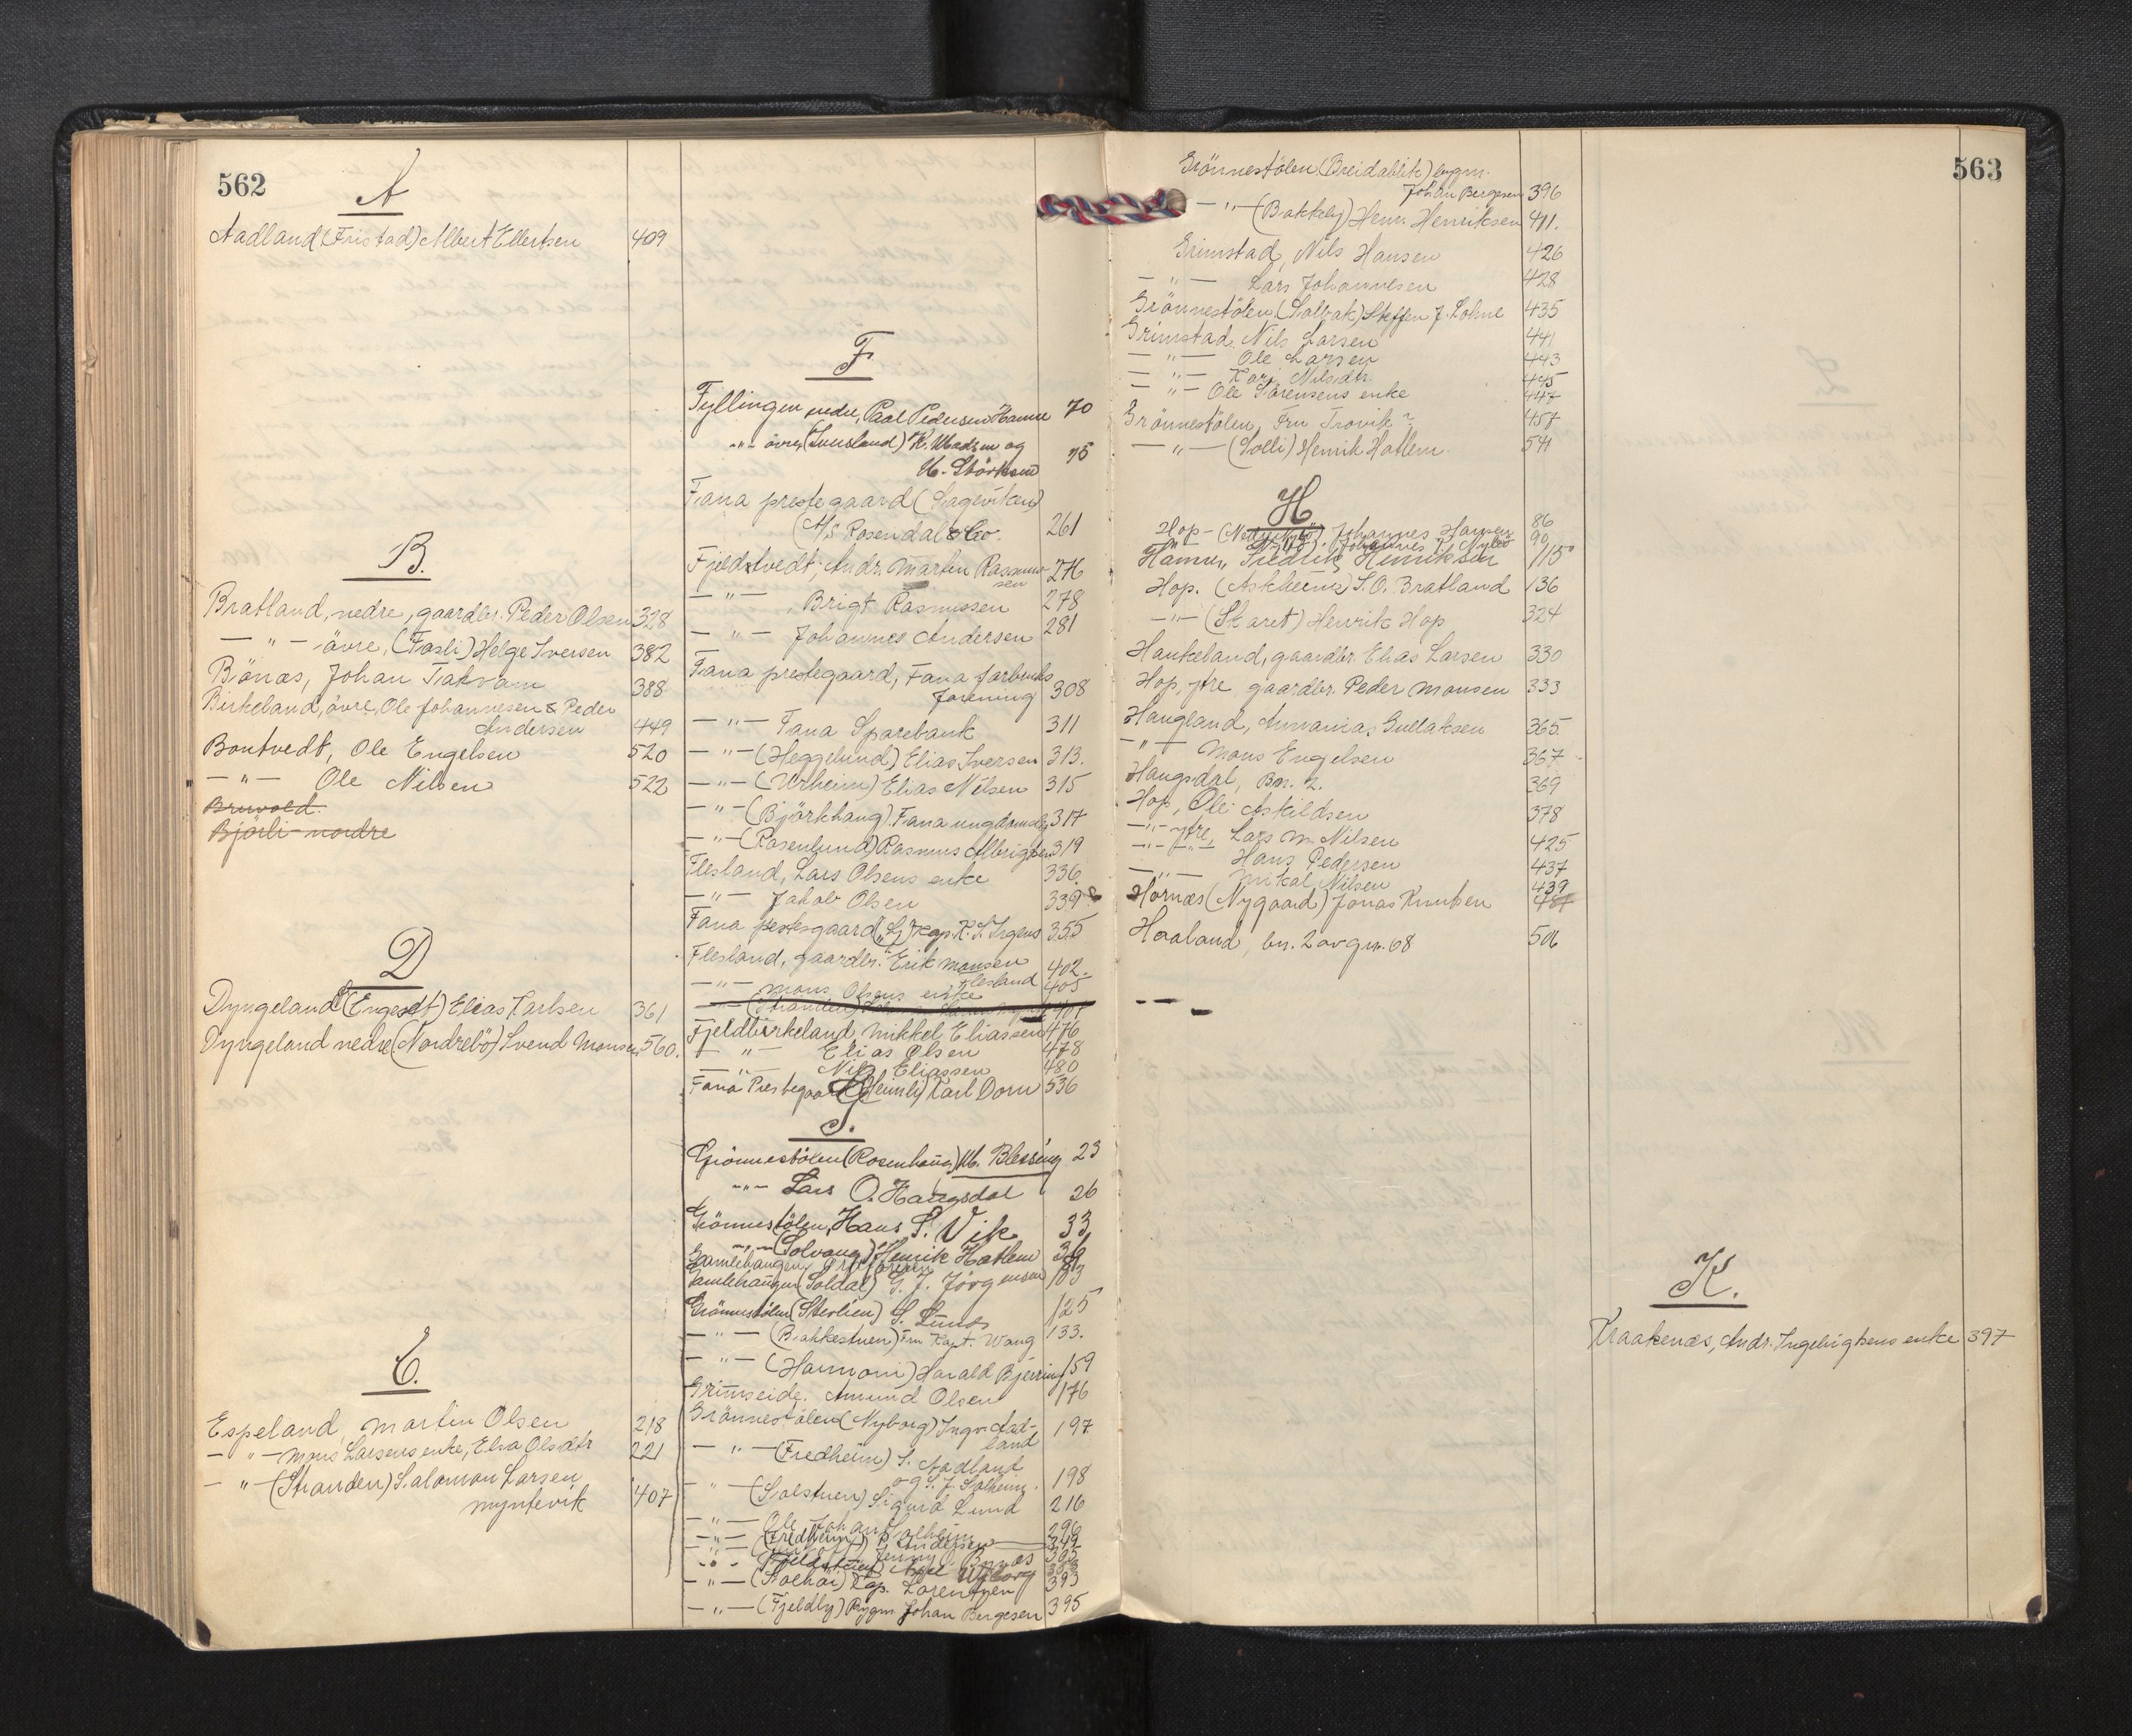 562
A
Aadland (Fristad) Albert Ellertsen 409
B.
Bratland, nedre, gaardbr. Peder Olsen 328
— " — övre, (Fasli) Helge Iversen 382
Bönæs, Johan Takvam 388
Birkeland, övre, Ole Johannesen & Peder
Andersen 449
Bontvedt, Ole Engelsen 520
— " — Ole Nilsen 522
Bruvold.
Bjørli nordre
D
Dyngeland (Engesdt) Elias Karlsen 361
Dyngeland nedre (Nordrebö) Svend Monsen 560.
E.
Espeland, Martin Olsen 218
— " — Mons Larsens enke, Elsa Olsdtr 221
— " — (Stranden) Salomon Larsen
Myntevik 407
F.
Fyllingen nedre, Paal Pedersen Hamre 70
— " — övre, (Iversland) K. Madsen og
M. Störksen 75
Fana prestegaard (Sagevikens)
(A/S Rosendal & Co. 261
Fjeldstvedt, Andr. Martin Rasmus-
sen 276
— " — , Brigt Rasmussen 278
— " — Johannes Andersen 281
Fana prestegaard, Fana forbruks
forening 308
— " — Fana Sparebank 311
— " — (Heggelund) Elias Iversen 313.
— " — (Urheim) Elias Nilsen 315
— " — (Björkhaug) Fana ungdomslag 317
— " — (Rosenlund) Rasmus Albrigtsen 319
Flesland, Lars Olsens enke 336
— " — Jakob Olsen 339
Fana prestegaard, "Li" Kap. K. S. Irgens 355
Flesland, gaardbr. Erik Monsen
Flesland 402.
— " — Mons Olsens enke 405
— " — (Stranden) 407
Fjeldbirkeland, Mikkel Eliassen 476
— " — Elias Olsen 478
— " — Nils Eliassen 480
Fana Prestegaard (Heimli) Karl Dorn 536
G.
Grönnestölen (Rosenhaug) M. Blessing 23
— " — Lars O. Haugsdal 26
Grönnestölen, Hans S. Vik 33
— " — (Solvang) Henrik Hatlem 36
Gamlehaugen,
Gamlehaugen (Soldal) G. J. Jörgensen 103
Grönnestölen (Sterlien) S. Lunds 125
— " — (Bakkestuen) Fru Kapt. Wang 133.
— " — (Harmoni) Harald Bjerring 159
Grimseide, Amund Olsen 176
Grönnestölen (Nyborg) Ingv. Aad-
land 197
— " — (Fredheim) S. Aadland
og S. J. Solheim. 198
— " — (Solstuen) Sigurd Lund 216
— " — Ole Johan Solheim 296
— " — (Fredheim) B. Andersen 349
— " — Jenny Bønæs 365
— " — (Solhöi) Kap. Lorentzen 393
— " — (Fjeldly) Bygm. Johan Bergesen 395
563
Grönnestölen (Breidablik) bygm.
Johan Bergesen 396
— " — (Bakkely) Henr. Henriksen 411.
Grimstad, Nils Hansen 426
— " — Lars Johannesen 428
Grönnestölen (Solbak) Steffen J. Lohne 435
Grimstad, Nils Larsen 441
— " — Ole Larsen 443
— " — Kari Nilsdtr. 445
— " — Ole Sörensens enke 447
Grönnestölen, Fru Trovik? 457
— " — (Solli) Henrik Hatlem 541
H
Hop - Johannes Hansen 86
Johannes J. Nybø 90
Hamre, Fredrik Henriksen 115
Hop. (Askheim) S. O. Bratland 136
— " — (Skaret) Henrik Hop 324
Haukeland, gaardbr. Elias Larsen 330
Hop, ytre, gaardbr. Peder Monsen 333
Haugland, Annanias Gullaksen 365.
— " — Mons Engelsen 367
Haugsdal, Bn. 2. 369
Hop, Ole Askildsen 378
— " — ytre, Lars M. Nilsen 425
— " — " — Hans Pedersen 437
— " — Mikal Nilsen 439
Hornæs (Nygaard) Jonas Knutsen 487
Haaland, bn. 2 av gn. 68 506
K.
Kraakenæs, Andr. Ingebrigtsens enke 397